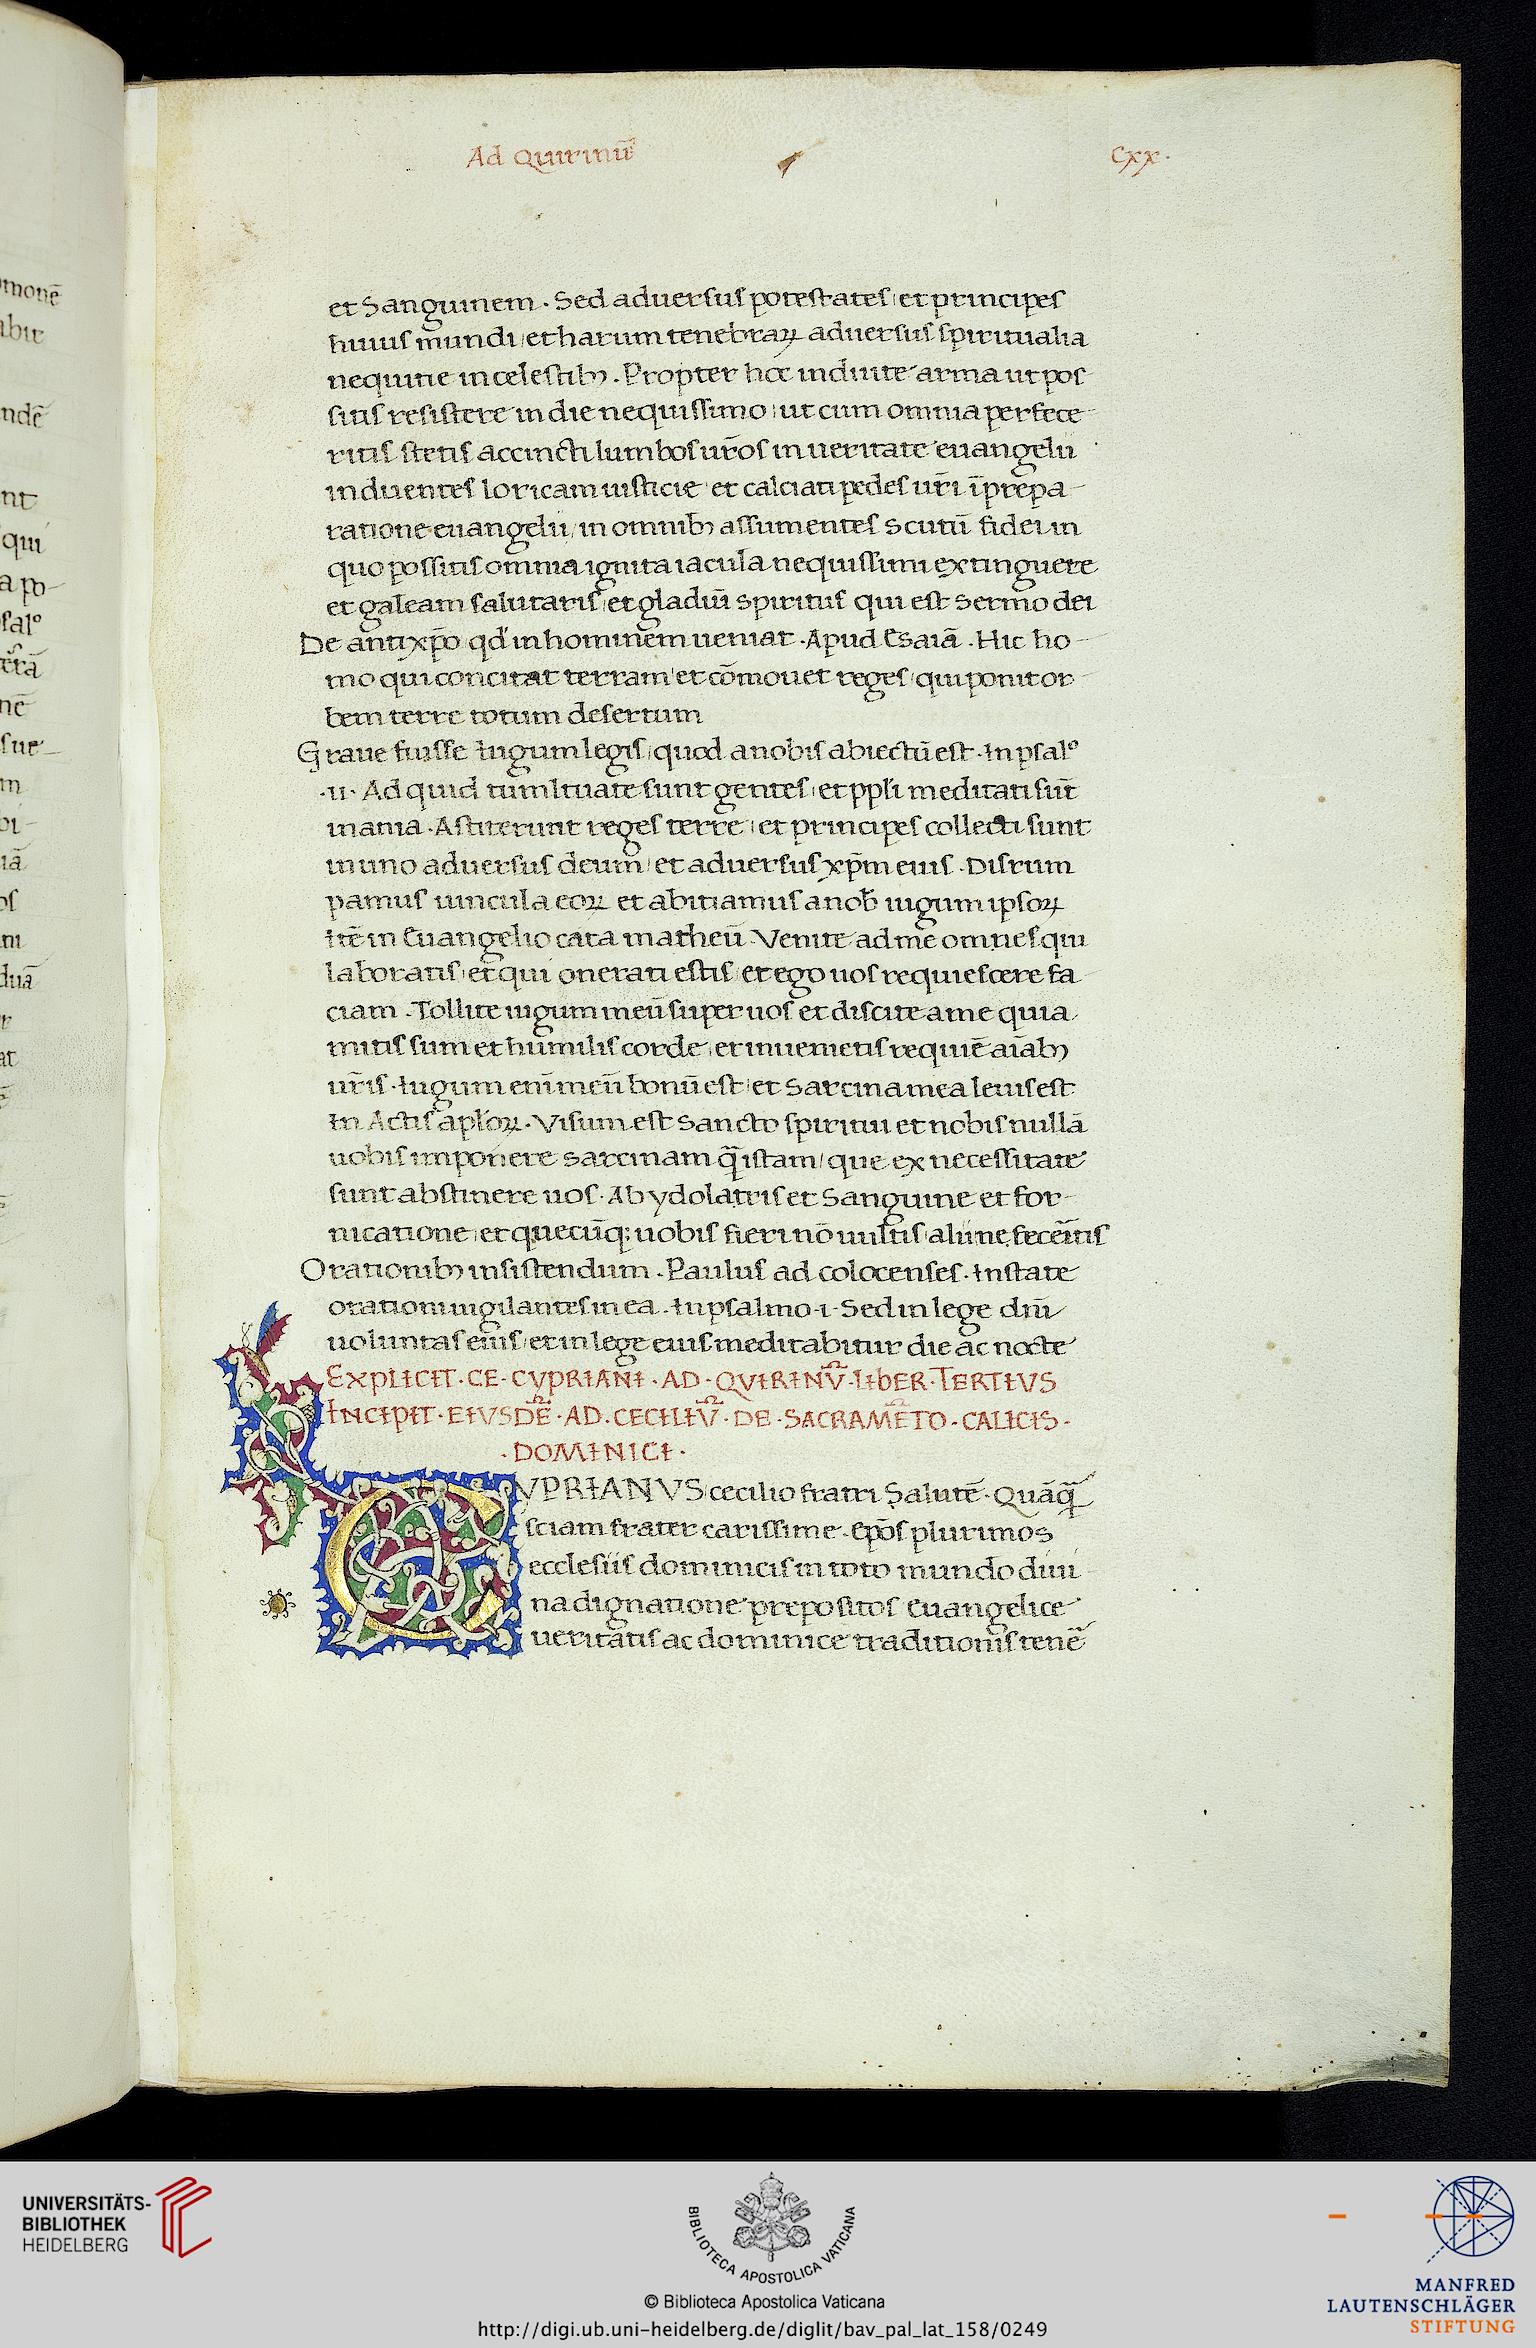 Ad Quirinū
cxx.
et Sanguinem . Sed aduersus potestates et principes
huius mundi et harum tenebraꝝ aduersus spiritualia
nequitie in celestibꝫ . Propter hoc induite arma ut pos
sitis resistere in die nequissimo ut cum omnia perfece
ritis stetis accincti lumbos ur̄os in ueritate euangelii
induentes loricam iusticie et calciati pedes ur̄i ī prepa
ratione euangelii in omnibꝫ assumentes scutū fidei in
quo possitis omnia ignita iacula nequissimi extinguere
et galeam salutaris et gladiū spiritus qui est sermo dei
De antixp̄o qd' in hominem ueniat . Apud Esaiā . Hic ho
mo qui concitat terram et cōmouet reges qui ponit or
bem terre totum desertum
Graue fuisse iugum legis quod a nobis abiectū est . In psalº
.ii. Ad quid tumltuate sunt gentes et ppl'i meditati sūt
inania . Astiterunt reges terre et principes collecti sunt
in uno aduersus deum et aduersus xp̄m eius . Disrum
pamus uincula eoꝝ et abitiamus a nob̄ iugum ipsoꝝ
itē in Euangelio cata matheū . Venite ad me omnes qui
laboratis et qui onerati estis et ego uos requiescere fa
ciam . Tollite iugum meū super uos et discite a me quia
mitis sum et humilis corde et inuenietis requiē aīabꝫ
ur̄is . iugum enī meū bonū est et Sarcina mea leuis est
In Actis apl'oꝝ . Visum est Sancto spiritui et nobis nullā
uobis imponere sarcinam q̄ istam que ex necessitate
sunt abstinere uos . Ab ydolatris et Sanguine et for
nicatione et quecūq; uobis fieri nō uultis alii ne fecēitis
Orationibꝫ insistendum . Paulus ad colocenses . Instate
orationi uigilantes in ea . In psalmo .i. Sed in lege dn̄i
uoluntas eius et in lege eius meditabitur die ac nocte
EXPLICIT . CE . CYPRIANI . AD . QVIRINV̄ . LIBER . TERTIVS
INCIPIT . EIVSDĒ . AD . CECILIV̄ . DE . SACRAMĒTO . CALICIS .
. DOMINICI .
CYPRIANVS cecilio fratri Salutē . Quāq̄
sciam frater carissime . ep̄os plurimos
ecclesiis dominicis in toto mundo diui
na dignatione prepositos Euangelice
ueritatis ac dominice traditionis tenē
omonē
abit
ndē
nt
qui
a po-
sal°
nē
sue
m
bi-
iā
os
ni
duā
at
UNIVERSITÄTS-
BIBLIOTHEK
HEIDELBERG
BIBLIOTECA APOSTOLICA VATICANA
© Biblioteca Apostolica Vaticana
http://digi.ub.uni-heidelberg.de/diglit/bav_pal_lat_158/0249
MANFRED
LAUTENSCHLÄGER
STIFTUNG